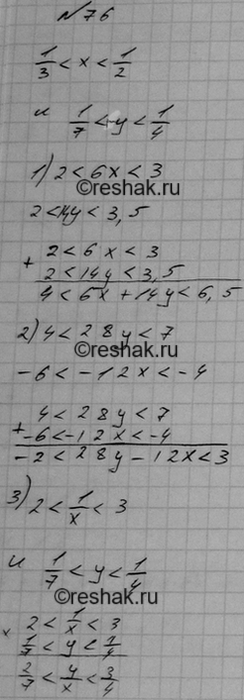 №76
1/3 < x < 1/2
и 1/7 < y < 1/4
1) 2 < 6x < 3
2 < 14y < 3,5
©reshak.ru
+ 2 < 6x < 3
2 < 14y < 3,5
4 < 6x + 14y < 6,5
2) 4 < 28y < 7
©reshak.ru
-6 < -12x < -4
+ 4 < 28y < 7
-6 < -12x < -4
-2 < 28y - 12x < 3
3) 2 < 1/x < 3
©reshak.ru
и 1/7 < y < 1/4
× 2 < 1/x < 3
1/7 < y < 1/4
2/7 < y/x < 3/4